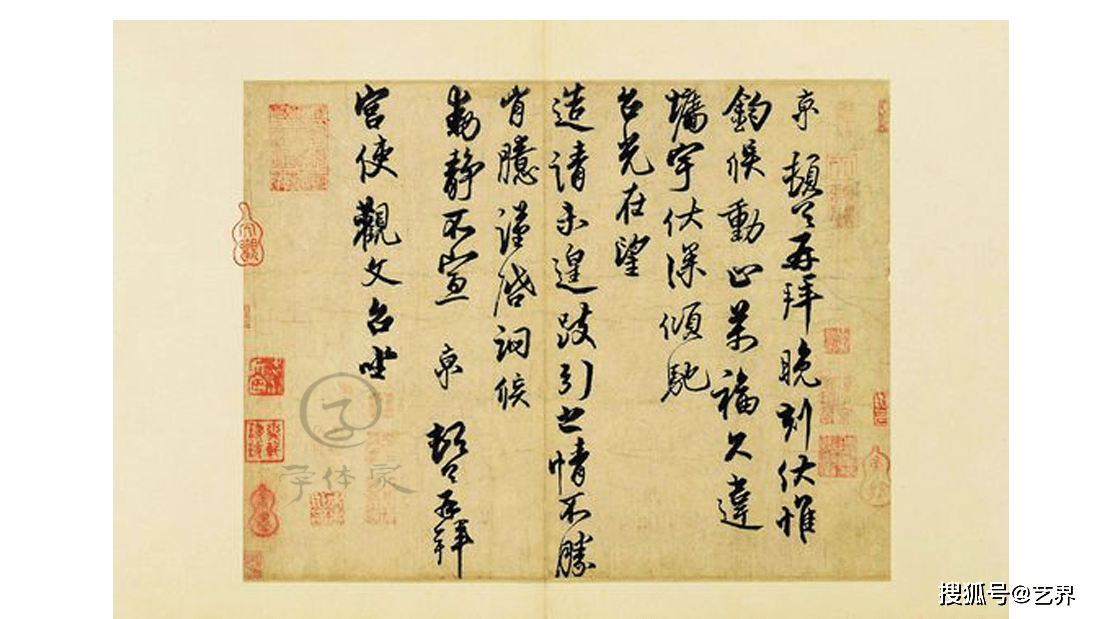 京 頓首再拜晚刻伏惟
鈞候動止萬福久違
牆宇伏深傾馳
台光在望
造請未遑跂引之情不勝
肖臆謹啓詞候
動靜不宣 京 頓首再拜
宮使觀文台坐
字体家
搜狐号@艺界